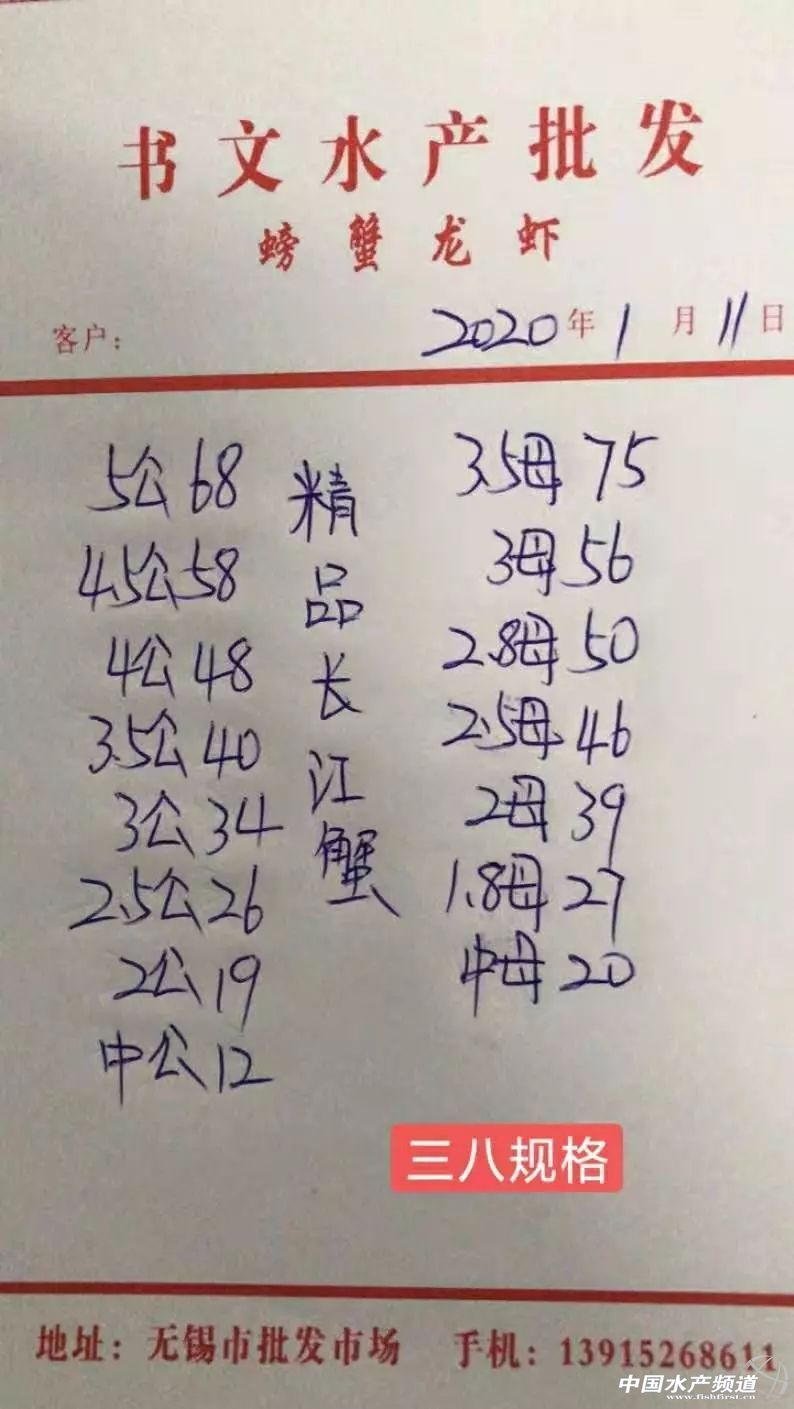 书文水产批发
螃蟹龙虾
客户: 2020年1月11日
5公68
4.5公58
4公48
3.5公40
3公34
2.5公26
2公19
中公12
精品长江蟹
3.5母75
3母56
2.8母50
2.5母46
2母39
1.8母27
中母20
三八规格
地址: 无锡市批发市场 手机: 13915268611
中国水产频道
www.fishfirst.cn